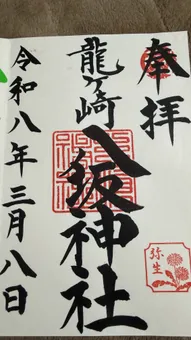 奉拝
龍ヶ崎
八坂神社
令和八年三月八日
弥生